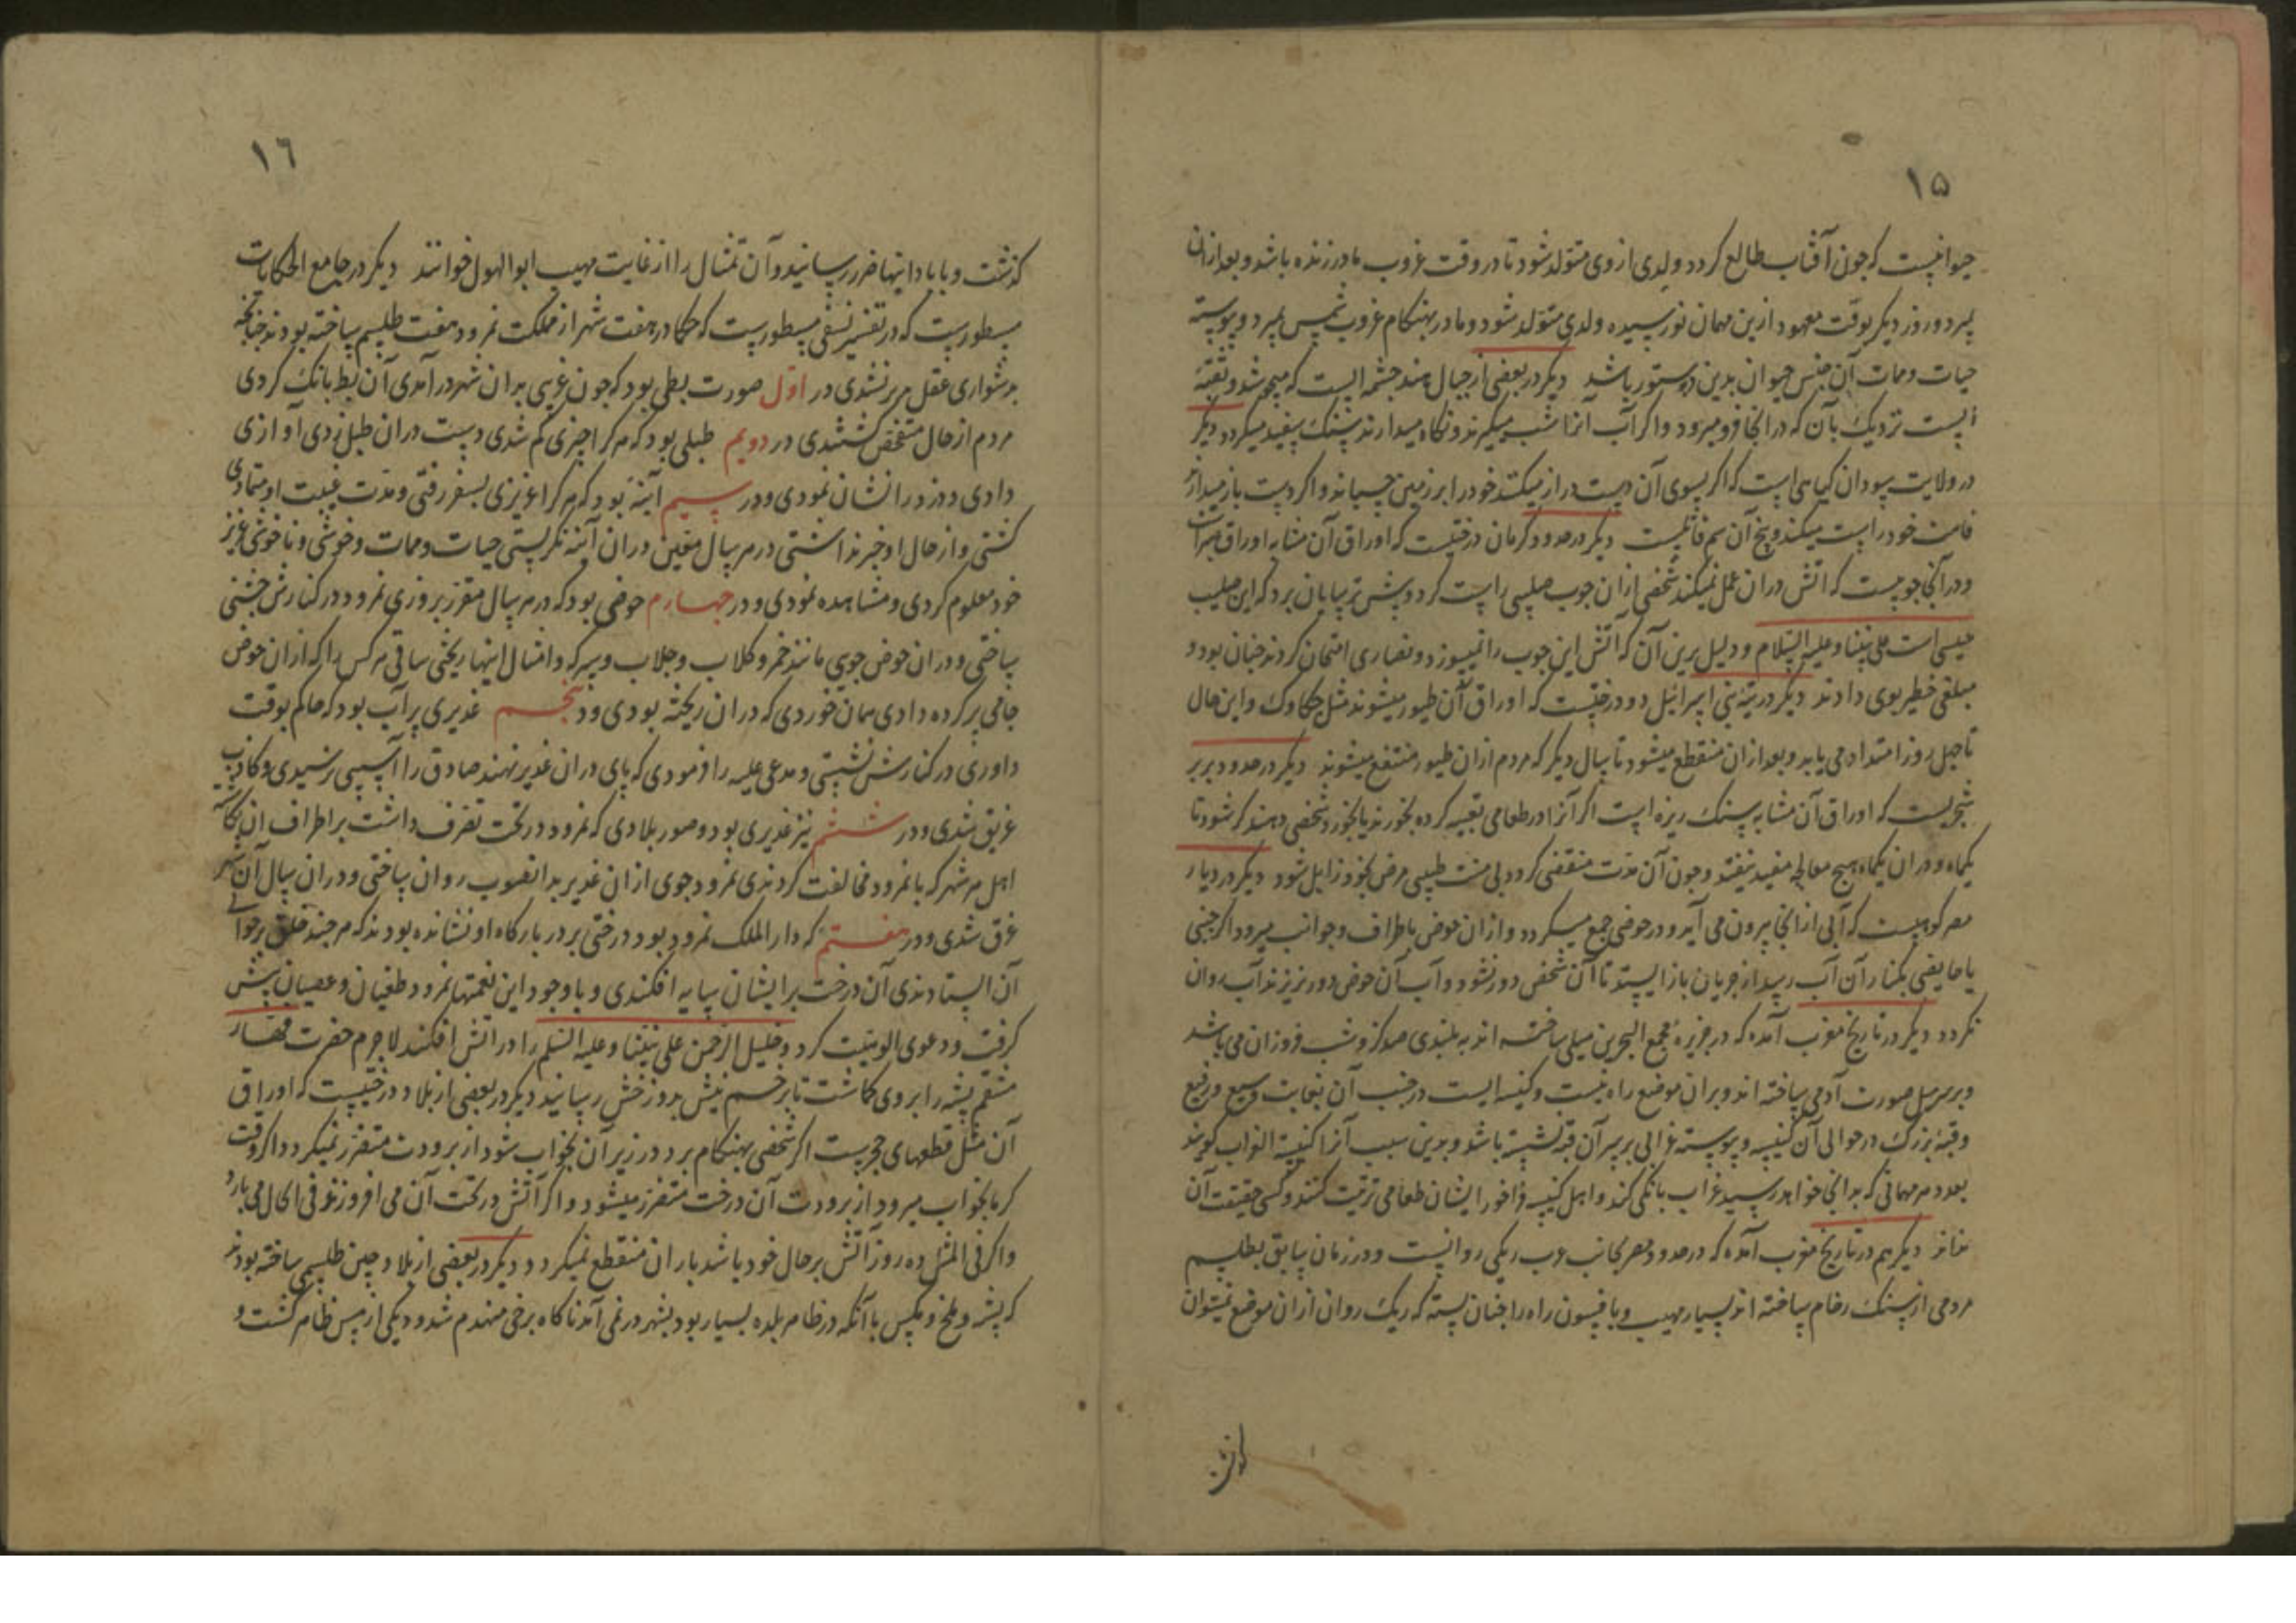 ۱۵
حیوانیست که جون آفتاب طالع کردد ولدی از وی متولد شود تا در وقت غروب مادر زنده باشد و بعد ازان
بمیرد و روز دیکر بوقت معهود ازین مهمان نورسیده ولدی متولد شود و مادر بهنکام غروب شمس بمیرد و پیوسته
حیات و ممات آن جنس حیوان بدین دستور باشد دیکر در بعضی از جبال هند جشمه ایست که
است نزدیک بآن که در انجا فرو میرود و اکر آب آنرا شب میکیرند و نکاه میدارند سنک سفید میکردد دیکر
در ولایت سودان کیاهی است که اکر بسوی آن دست دراز میکنند خود را بر زمین چسباند و اکر دست باز میدارند
قامت خود راست میکند و بیخ آن سم قاتلست دیکر در حدود کرمان درختیست که اوراق آن مشابه اوراق
و در آنجا جوبیست که اتش دران عمل نمیکند شخصی ازان جوب صلیبی راست کرد و پیش ترسایان برد که این صلیب
عیسی است علی نبینا و علیه السلام و دلیل برین آن که آتش این جوب را نمیسوزد و نصاری امتحان کردند جنان بود و
مبلغی خطیر بوی دادند دیکر در تیه بنی اسرائیل دو درختیست که اوراق آن طیور میشوند مثل جکاوک و این حال
تا جهل روز امتداد می یابد و بعد ازان منقطع میشود تا سال دیکر که مردم ازان طیور منتفع میشوند دیکر در حدود بربر
شجریست که اوراق آن مشابه سنک ریزه است اکر آنرا در طعامی تعبیه کرده بخورند یا بخورد شخصی دهند کر شود تا
یکماه و دران یکماه هیج معالجه مفید نیفتد و جون آن مدت منقضی کردد بی منت طبیبی مرض بخود زایل شود دیکر در دیار
مصر کوهیست که آبی از انجا بیرون می آید و در حوضی جمع میکردد و ازان حوض باطراف و جوانب میرود اکر جنبی
یا حایضی بکنار آن آب رسد از جریان باز ایستد تا آن شخص دور نشود و آب آن حوض دور نریزند آب روان
نکردد دیکر در تاریخ مغرب آمده که در جزیره مجمع البحرین میلی ساخته اند به بلندی صد کز و شب فروزان می باشد
و بر سر میل صورت آدمی ساخته اند و بران موضع راه نیست و کنیسه ایست در جنب آن بغایت وسیع و رفیع
و قبه بزرک در حوالی آن کنیسه و پیوسته غرابی بر سر آن قبه نشسته باشد و بدین سبب آنرا کنیسة الغراب کویند
بعدد هر مهمانی که بدانجا خواهد رسید غراب بانکی کند و اهل کنیسه فراخور ایشان طعامی ترتیب کنند و کسی حقیقت آن
نداند دیکر هم در تاریخ مغرب آمده که در حدود مصر بجانب غرب ریکی روانست و در زمان سابق بطلسم
مردمی از سنک رخام ساخته اند بسیار مهیب و بافسون راه را جنان بسته که ریک روان ازان موضع نمیتوان
کذشت
۱٦
کذشت و بابادانیها ضرر رسانید و آن تمثال را از غایت مهیب ابو الهول خوانند دیکر در جامع الحکایات
مسطورست که در تفسیر نسفی مسطورست که حکما در هفت شهر از مملکت نمرود هفت طلسم ساخته بودند جنانجه
بدشواری عقل بر نشدی در اول صورت بطی بود که جون غریبی بدان شهر در آمدی آن بط بانک کردی
مردم از حال متفحص کشتندی در دویم طبلی بود که هر کرا جیزی کم شدی دست دران طبل زدی آوازی
دادی و دزد را نشان نمودی و در سیم آینه بود که هر کرا عزیزی بسفر رفتی و مدت غیبت او متمادی
کشتی و از حال او خبر نداشتی در هر سال معین دران آینه نکریستی حیات و ممات و خوشی و ناخوشی عزیز
خود معلوم کردی و مشاهده نمودی و در جهارم حوضی بود که در هر سال مقرر بروزی نمرود در کنارش جشنی
ساختی و دران حوض جوی مانند خمر و کلاب و جلاب و سرکه و امثال اینها ریختی ساقی هر کس را که ازان حوض
جامی پر کرده دادی همان خوردی که دران ریخته بودی و در پنجم غدیری پر آب بود که حاکم بوقت
داوری در کنارش نشستی و مدعی علیه را فرمودی که پای دران غدیر نهند صادق را آسیبی نرسیدی و کاذب
غریق شدی و در ششم نیز غدیری بود و صور بلادی که نمرود در تحت تصرف داشت بر اطراف
اهل هر شهر که با نمرود مخالفت کردندی نمرود جوی ازان غدیر بدانصوب روان ساختی و دران سال آن
غرق شدی و در هفتم که دار الملک نمرود بود درختی بر در بارکاه او نشانده بودند که هر جند خلق بر حوالی
آن ایستادندی آن درخت بر ایشان سایه افکندی و با وجود این نعمتها نمرود طغیان و عصیان پیش
کرفت و دعوی الوهیت کرد و خلیل الرحمن علی نبینا و علیه السلم را در اتش افکند لاجرم حضرت قهار
منتقم پشه را بر وی کماشت تا بزخم نیش بدوزخش رسانید دیکر در بعضی از بلاد درختیست که اوراق
آن مثل قطعهای حجریست اکر شخصی بهنکام برد در زیر آن بخواب شود از برودت متضرر نمیکردد و اکر وقت
کرما بخواب میرود از برودت آن درخت متضرر میشود و اکر آتش در تحت آن می افروزند فی الحال می بارد
و اکر فی المثل ده روز آتش بر حال خود باشد باران منقطع نمیکردد و دیکر در بعضی از بلاد چین طلسمی ساخته بودند
که پشه و ملخ و مکس با آنکه در ظاهر بلده بسیار بود بشهر در نمی آمد ناکاه برجی منهدم شد و دیکی از مس ظاهر کشت و